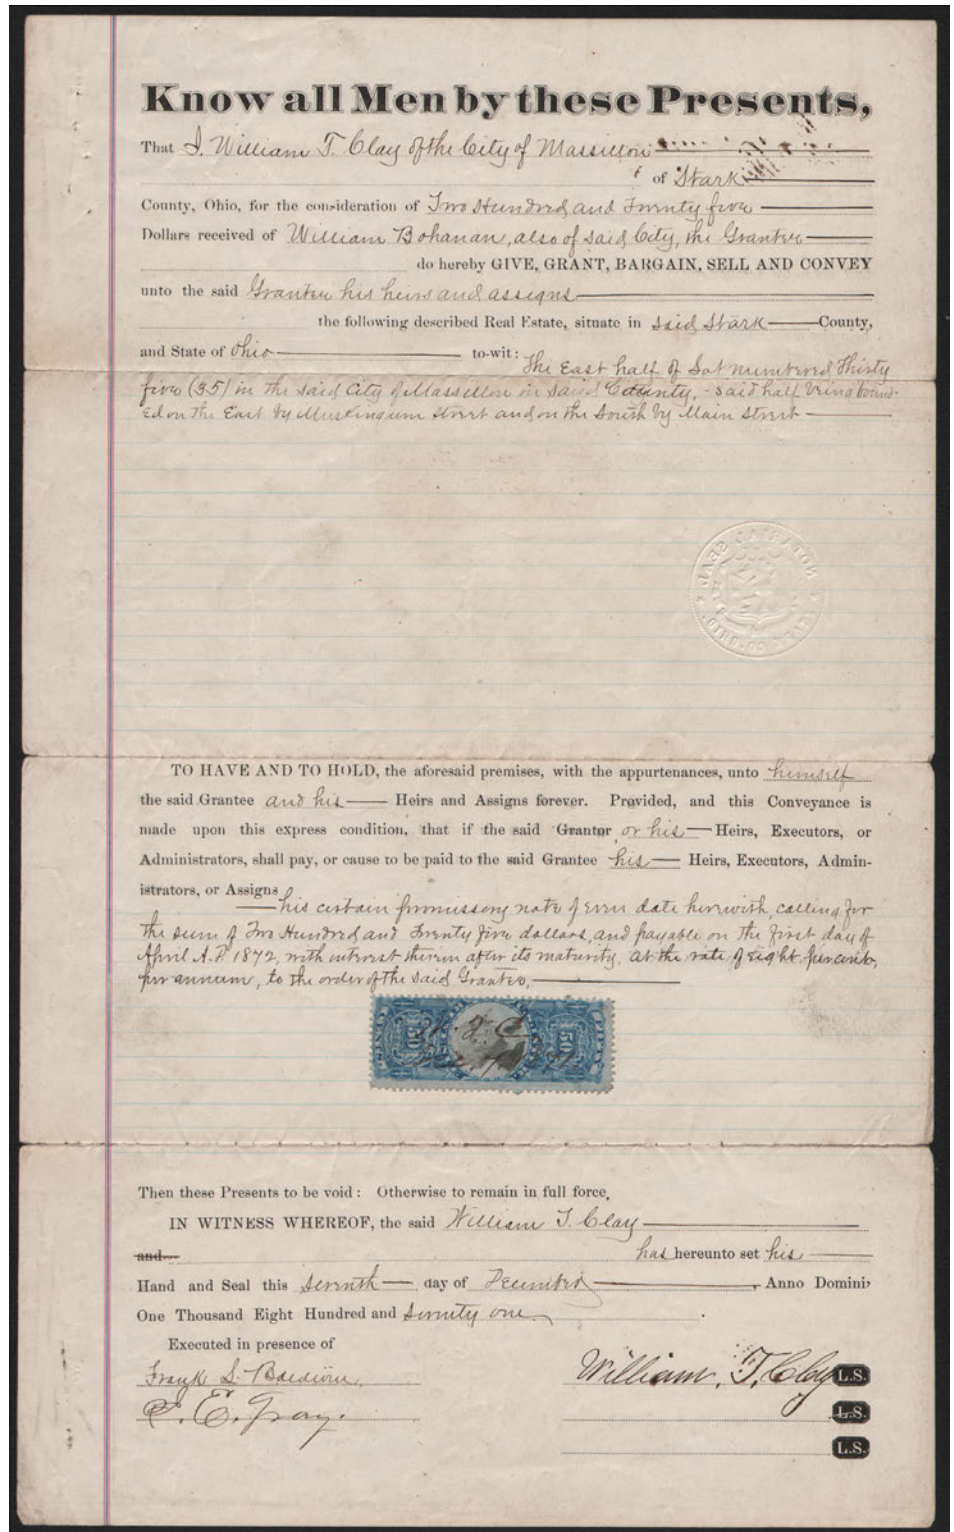 Know all Men by these Presents,
That I, William T. Clay of the City of Massillon
of Stark
County, Ohio, for the consideration of Two Hundred and Twenty five
Dollars received of William Bohanan, also of said City, the Grantee
do hereby GIVE, GRANT, BARGAIN, SELL AND CONVEY
unto the said Grantee his heirs and assigns
the following described Real Estate, situate in said Stark County,
and State of Ohio to-wit: The East half of Lot numbered Thirty
five (35) in the said City of Massillon in said County, - said half being bound-
ed on the East by Muskingum Street and on the South by Main Street
NOTARIAL SEAL
STARK CO. OHIO
TO HAVE AND TO HOLD, the aforesaid premises, with the appurtenances, unto himself
the said Grantee and his Heirs and Assigns forever. Provided, and this Conveyance is
made upon this express condition, that if the said Grantor or his Heirs, Executors, or
Administrators, shall pay, or cause to be paid to the said Grantee his Heirs, Executors, Admin-
istrators, or Assigns
his certain promissory note of even date herewith, calling for
the sum of Two Hundred and Twenty five dollars, and payable on the first day of
April A.D. 1872, with interest therein after its maturity, at the rate of eight per cent,
per annum, to the order of the said Grantee,
50 50
W. T. C.
Then these Presents to be void: Otherwise to remain in full force.
IN WITNESS WHEREOF, the said William T. Clay
and has hereunto set his
Hand and Seal this seventh day of December, Anno Domini,
One Thousand Eight Hundred and seventy one
Executed in presence of
Frank L. Baldwin William. T. Clay L.S.
E. Gray. L.S.
L.S.